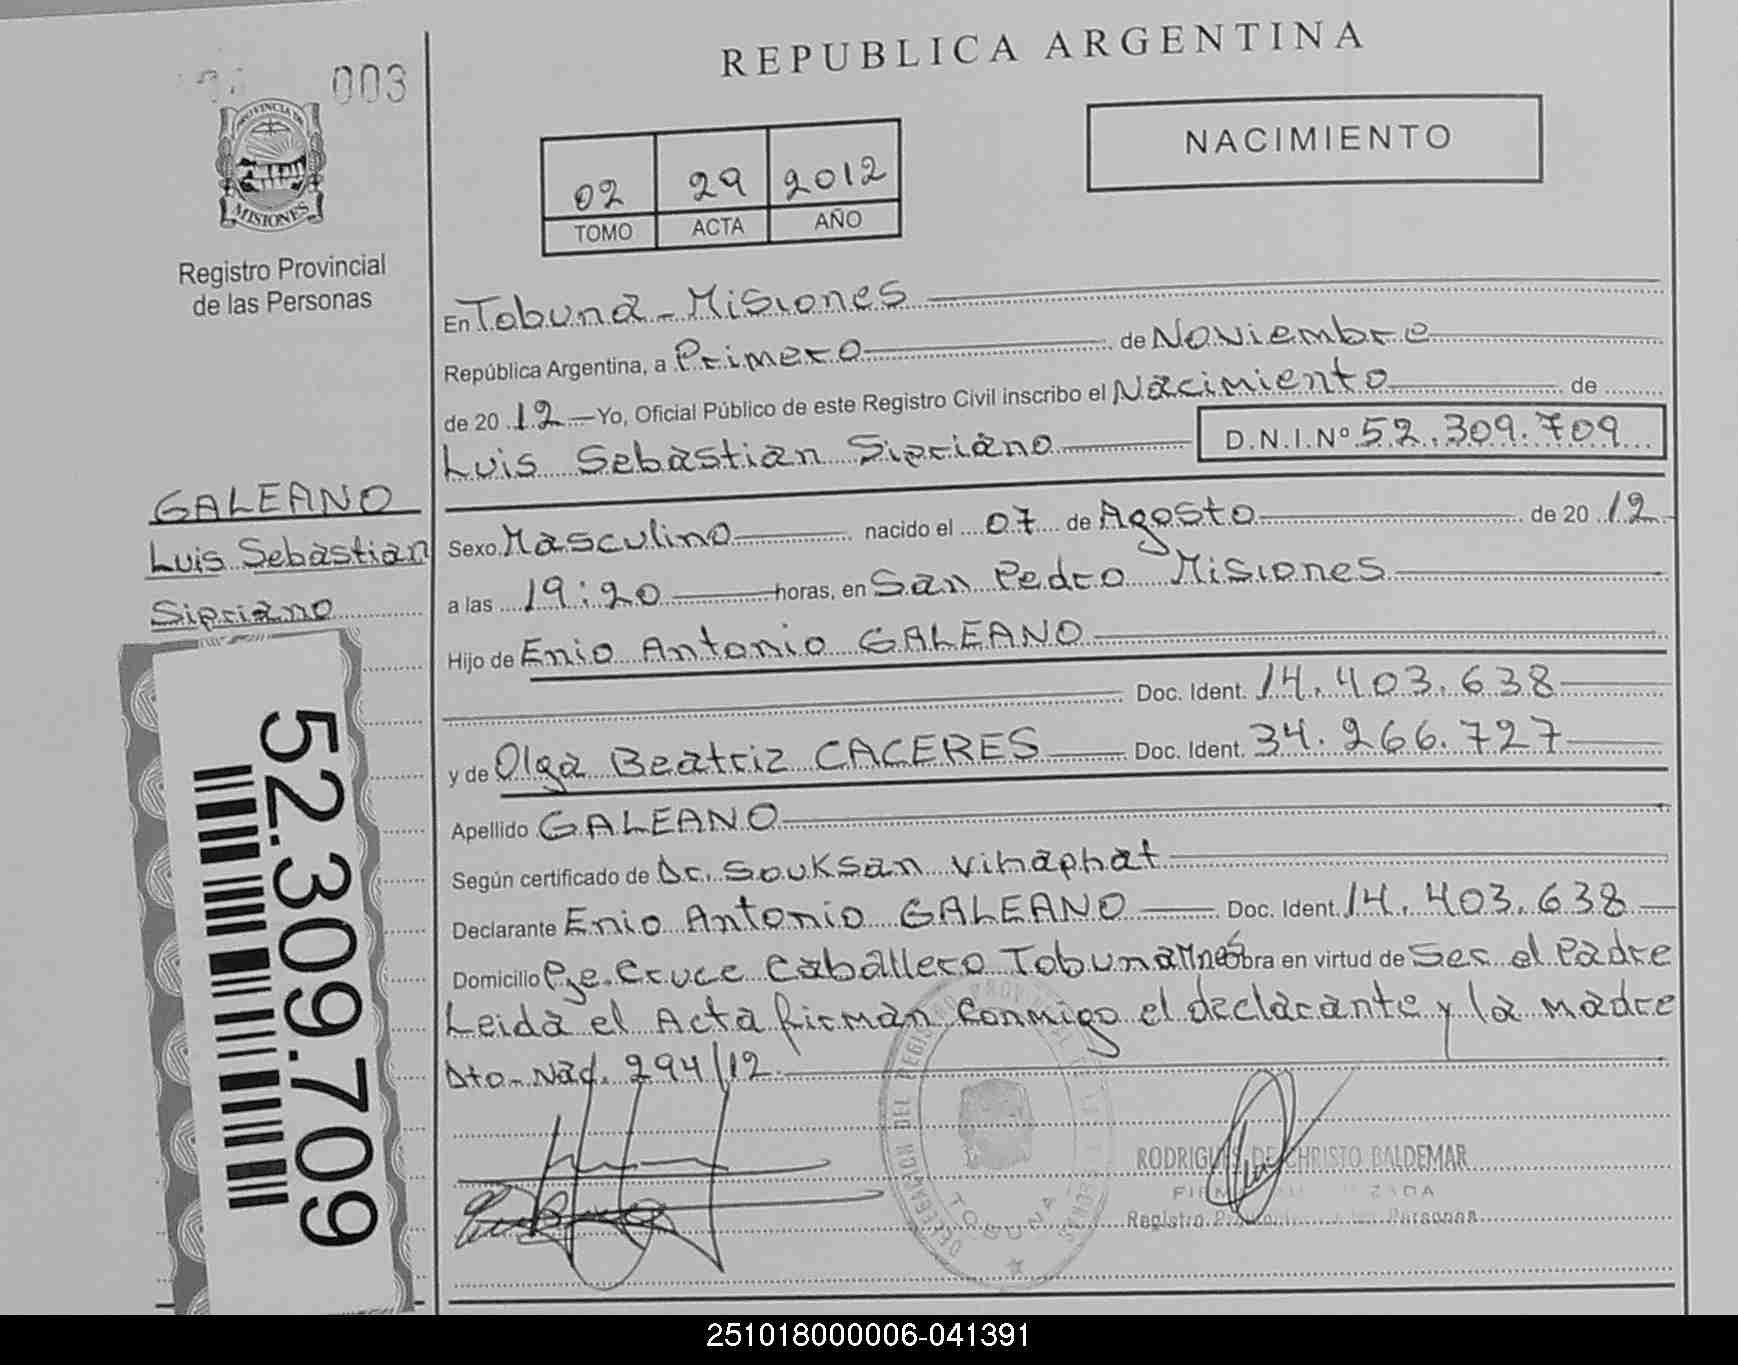 003
PROVINCIA DE
MISIONES
Registro Provincial
de las Personas
REPUBLICA ARGENTINA
02 29 2012
TOMO ACTA AÑO
NACIMIENTO
En Tobuna - Misiones
República Argentina, a Primero de Noviembre
de 2012 Yo, Oficial Público de este Registro Civil inscribo el Nacimiento de
Luis Sebastian Sipriano D.N.I.Nº 52.309.709
GALEANO
Luis Sebastian
Sipriano
52.309.709
Sexo Masculino nacido el 07 de Agosto de 2012
a las 19:20 horas, en San Pedro Misiones
Hijo de Enio Antonio GALEANO
Doc. Ident. 14.403.638
y de Olga Beatriz CACERES Doc. Ident. 34.266.727
Apellido GALEANO
Según certificado de Dr. Souksan Vihaphat
Declarante Enio Antonio GALEANO Doc. Ident. 14.403.638
Domicilio Pje. Cruce Caballero Tobuna Mnes Obra en virtud de Ser el Padre
Leida el Acta firman conmigo el declarante y la madre
Dto. Nac. 294/12
TOBUNA
RODRIGUES DE CHRISTO BALDEMAR
Registro Personas
251018000006-041391